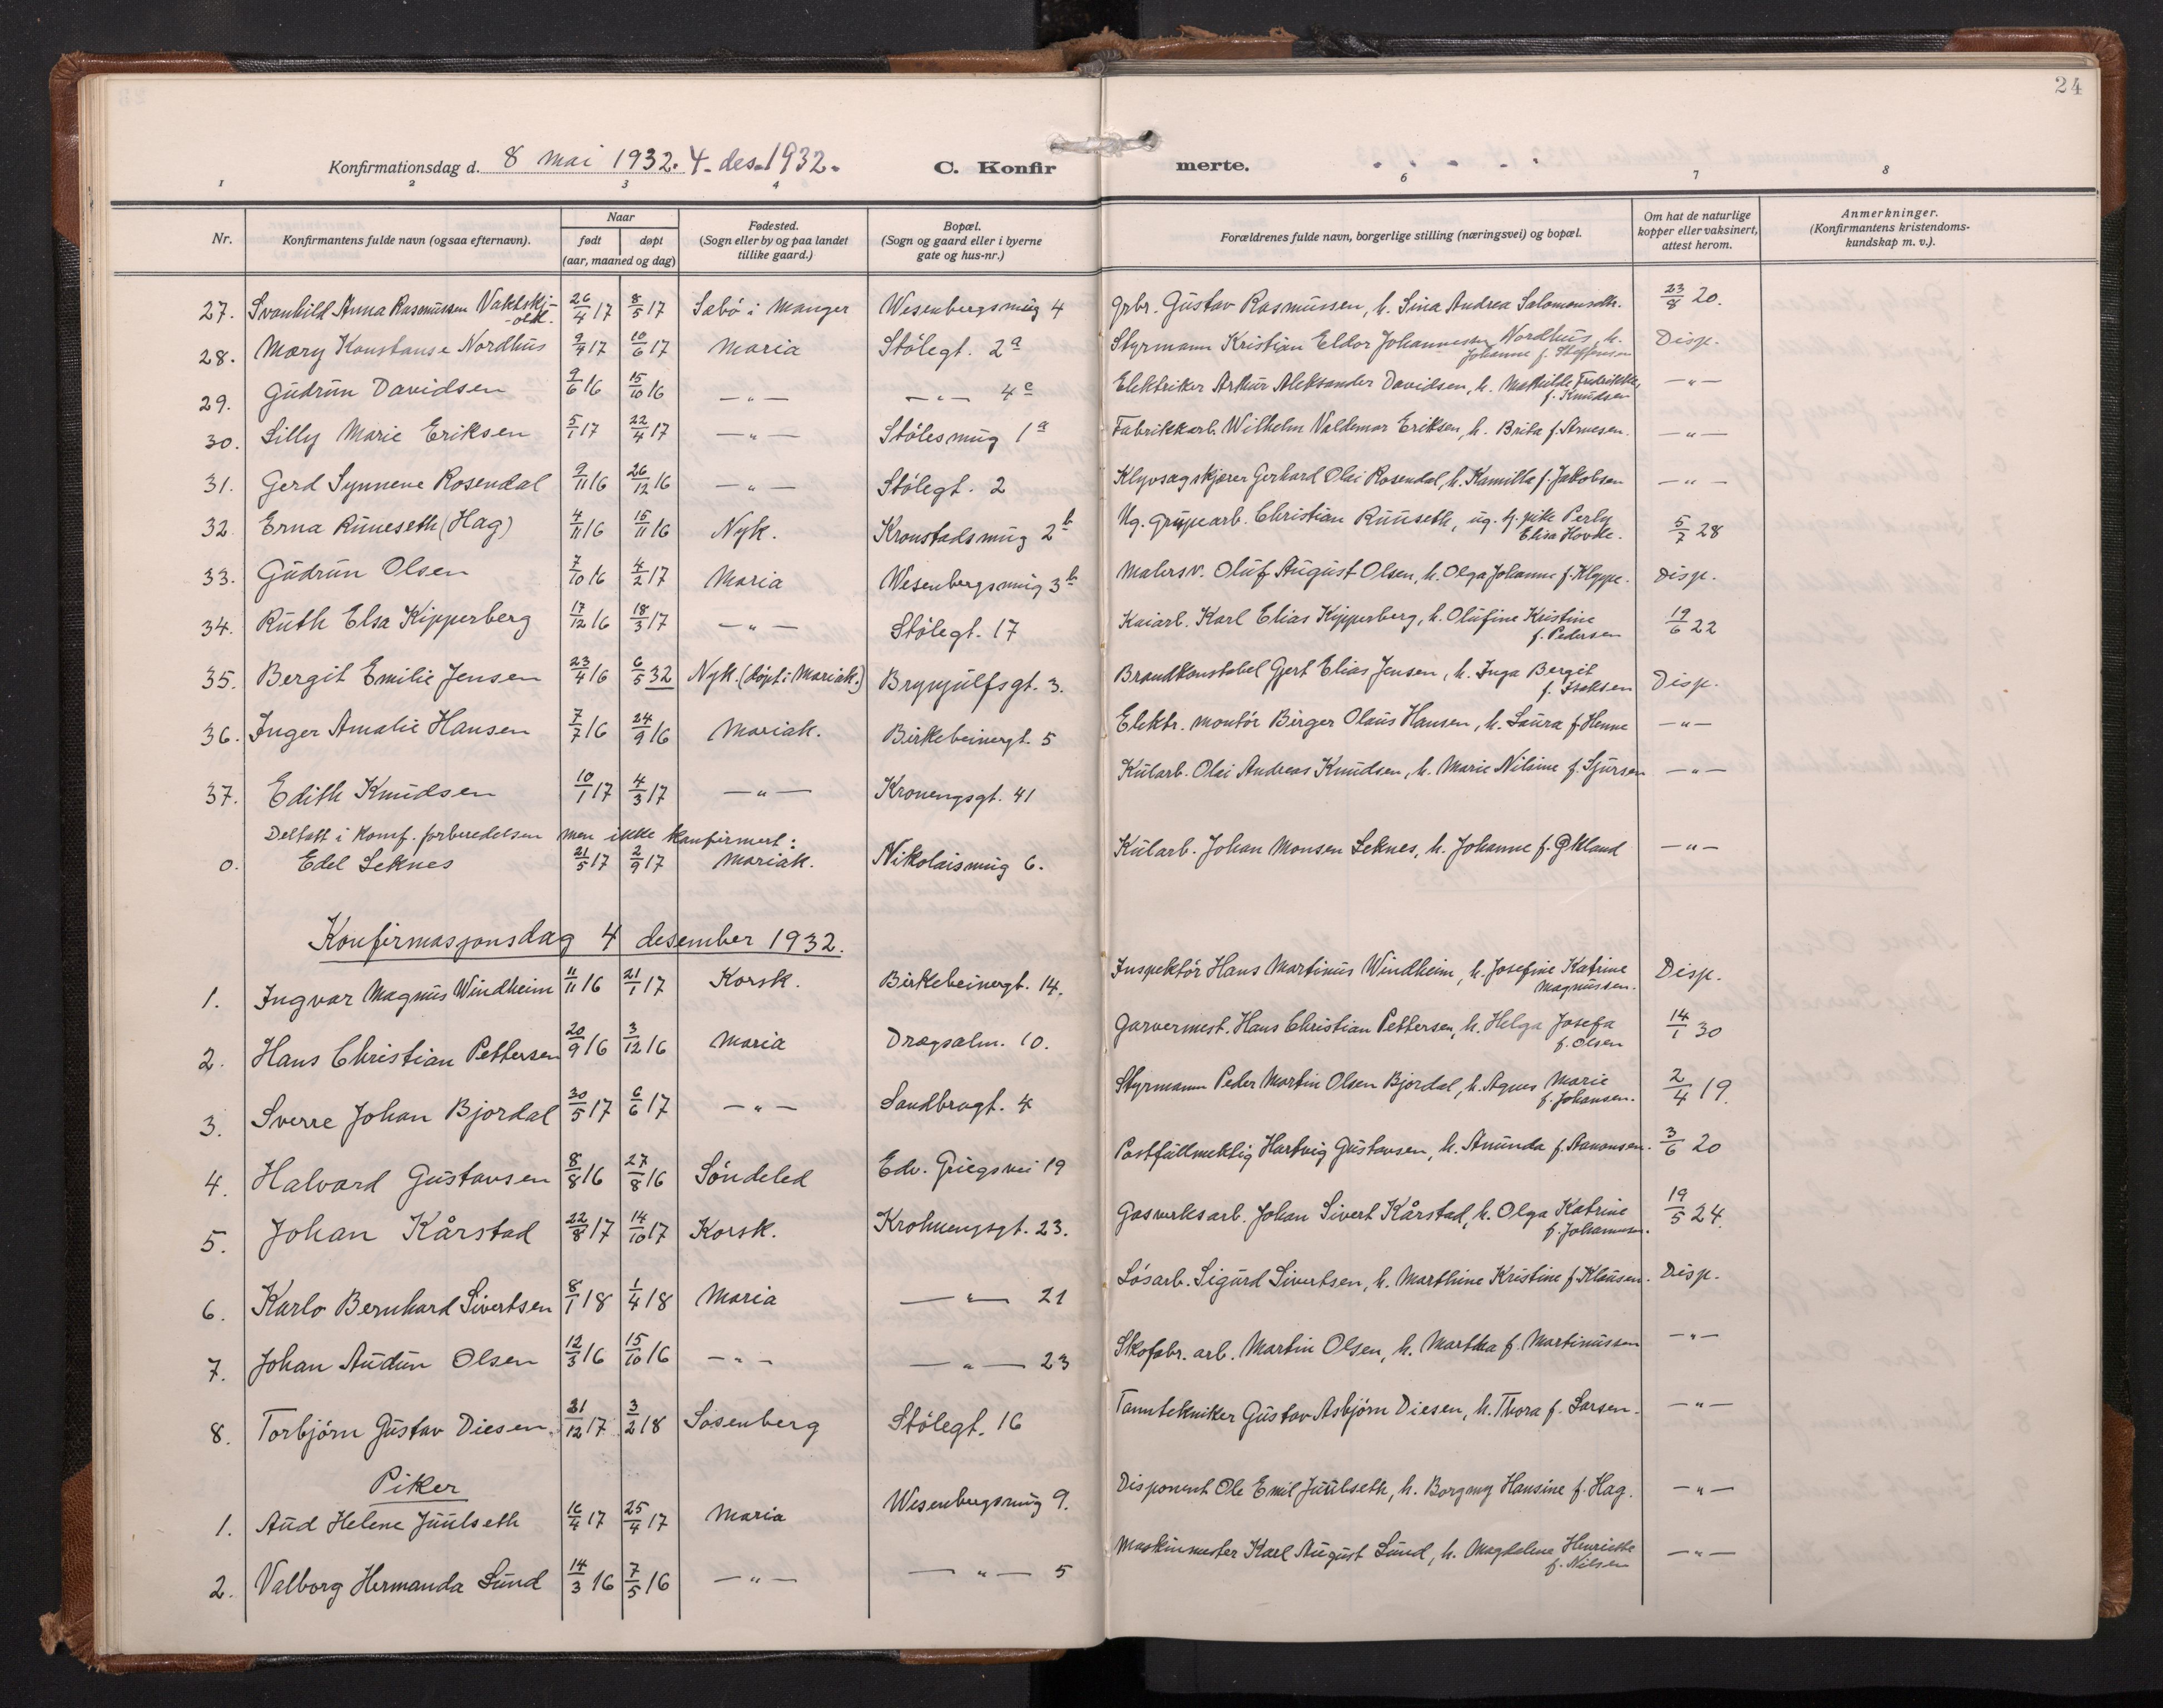 24
Konfirmationsdag d. 8 mai 1932. 4. des. 1932.
C. Konfirmerte.
1 2 3 4 6 7 8
Nr. Konfirmantens fulde navn (ogsaa efternavn). Naar født døpt (aar, maaned og dag) Fødested. (Sogn eller by og paa landet tillike gaard.) Bopæl. (Sogn og gaard eller i byerne gate og hus-nr.) Forældrenes fulde navn, borgerlige stilling (næringsvei) og bopæl. Om hat de naturlige kopper eller vaksinert, attest herom. Anmerkninger. (Konfirmantens kristendomskundskap m. v.).
27. Svanhild Anna Rasmussen 26/4 17 8/5 17 Sæbö i Manger Wesenbergsmug 4 Grbr. Gustav Rasmussen, h. Sina Andrea Salomonsdtr. 23/8 20.
28. Mary Konstanse Nordhus 9/4 17 10/6 17 Maria Stölegt. 2a Styrmann Kristian Eldor Johannessen Nordhus, h. Johanne f. Steffensen Disp.
29. Gudrun Davidsen 9/6 16 15/10 16 — " — — " — 4c Elektriker Arthur Aleksander Davidsen, h. Mathilde Fredrikke, f. Knudsen — " —
30. Lilly Marie Eriksen 5/1 17 22/4 17 — " — Stölesmug 1a Fabrikkarb. Wilhelm Valdemar Eriksen, h. Brita f. Arnesen. — " —
31. Gerd Synneve Rosendal 9/11 16 26/12 16 — " — Stölegt. 2 Klyvsagskjærer Gerhard Olai Rosendal, h. Kamilla f. Jakobsen — " —
32. Erna Runeseth (Hag) 4/11 16 15/11 16 Nyk. Kronstadsmug 2b Ug. Christian ug. tj. pike Perly Elisa Hovde. 5/7 28
33. Gudrun Olsen 7/10 16 4/2 17 Maria Wesenbergsmug 3b Malersv. Oluf August Olsen, h. Olga Johanne f. Kleppe. Disp.
34. Ruth Elsa Kipperberg 17/12 16 18/3 17 — " — Stölegt. 17 Kaiarb. Karl Elias Kipperberg, h. Olufine Kristine f. Pedersen 19/6 22
35. Bergit Emilie Jensen 23/4 16 6/5 32 Nyk. (döpt i Mariak.) Brynjulfsgt. 3. Brandkonstabel Gjert Elias Jensen, h. Inga Bergit f. Isaksen Disp.
36. Inger Amalie Hansen 7/7 16 24/9 16 Mariak. Birkebeinergt. 5 Elektr. montör Birger Olaus Hansen, h. Laura f. Henne — " —
37. Edith Knudsen 10/1 17 4/3 17 — " — Kronengsgt. 41 Kularb. Olai Andreas Knudsen, h. Marie Nilsine f. Sjursen — " —
Deltatt i konf. forberedelsen men ikke konfirmert:
0. Edel Leknes 21/5 17 2/9 17 Mariak. Nikolaismug 6. Kularb. Johan Monsen Leknes, h. Johanne f. Økland — " —
Konfirmasjonsdag 4 desember 1932.
1. Ingvar Magnus Windheim 11/11 16 21/1 17 Korsk. Birkebeinergt. 14. Inspektör Hans Martinus Windheim, h. Josefine Katrine Magnussen. Disp.
2. Hans Christian Pettersen 20/9 16 3/12 16 Maria Dragsalm. 10. Garvermest. Hans Christian Pettersen, h. Helga Josefa f. Olsen 14/1 30
3. Sverre Johan Bjordal 30/5 17 6/6 17 — " — Sandbrogt. 4 Styrmann Peder Martin Olsen Bjordal, h. Agnes Marie f. Johansen. 2/4 19.
4. Halvard Gustavsen 8/8 16 27/8 16 Söndeled Edv. Griegsvei 19 Postfullmektig Hartvig Gustavsen, h. Amunda f. Aanonsen. 3/6 20
5. Johan Kårstad 22/8 17 14/10 17 Korsk. Krohnengsgt. 23. Gasverksarb. Johan Sivert Kårstad, h. Olga Katrine f. Johannesen. 19/5 24.
6. Karlo Bernhard Sivertsen 8/1 18 1/4 18 Maria — " — 21 Lösarb. Sigurd Sivertsen, h. Marthine Kristine f. Klausen. Disp.
7. Johan Audun Olsen 12/3 16 15/10 16 — " — — " — 23 Skofabr. arb. Martin Olsen, h. Martha f. Martinussen — " —
8. Torbjörn Gustav Diesen. 31/12 17 3/2 18 Sosenberg Stölegt. 16 Tanntekniker Gustav Asbjörn Diesen, h. Thora f. Larsen. — " —
Piker
1. Aud Helene Juulseth 16/4 17 25/4 17 Maria Wesenbergsmug 9. Disponent Ole Emil Juulseth, h. Borgny Hansine f. Hag. — " —
2. Valborg Hermanda Lund 14/3 16 7/5 16 — " — — " — 5 Maskinmester Karl August Lund, h. Magdalena Henrikke f. Nilsen — " —